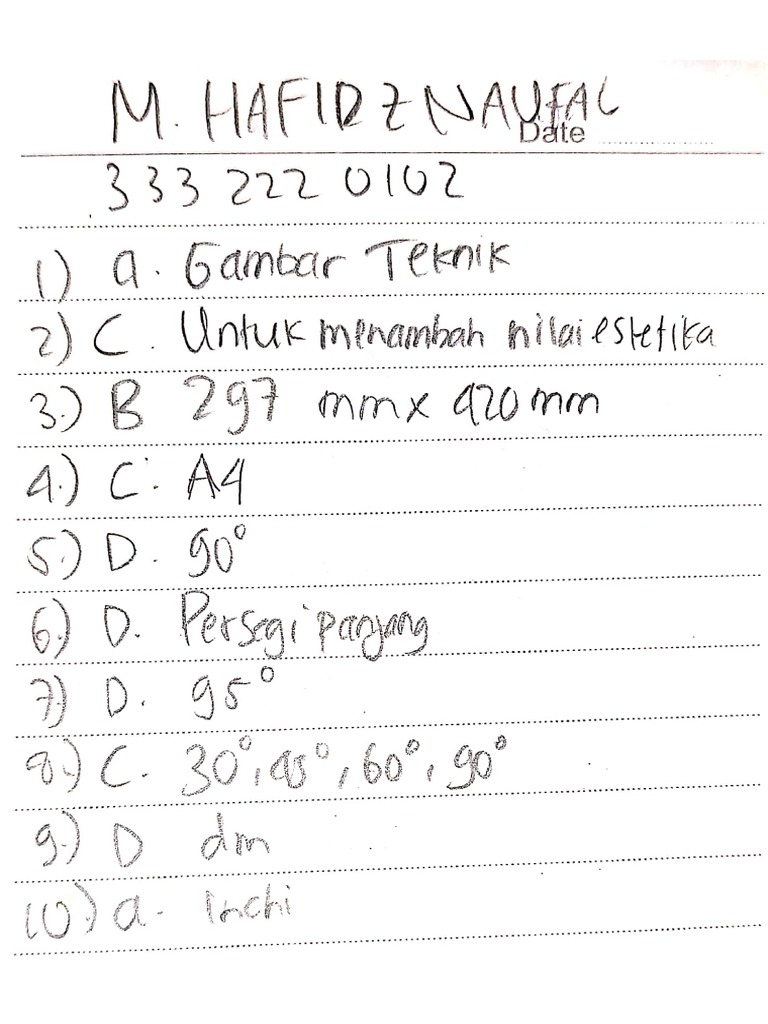 M. HAFIDZ NAUFAL
Date
333 222 0102
1) a. Gambar Teknik
2) C. Untuk menambah nilai estetika
3.) B 297 mm x 420 mm
4.) C. A4
5.) D. 90°
6.) D. Persegi panjang
7) D. 95°
8.) C. 30°, 45°, 60°, 90°
9.) D dm
10.) a. Inchi